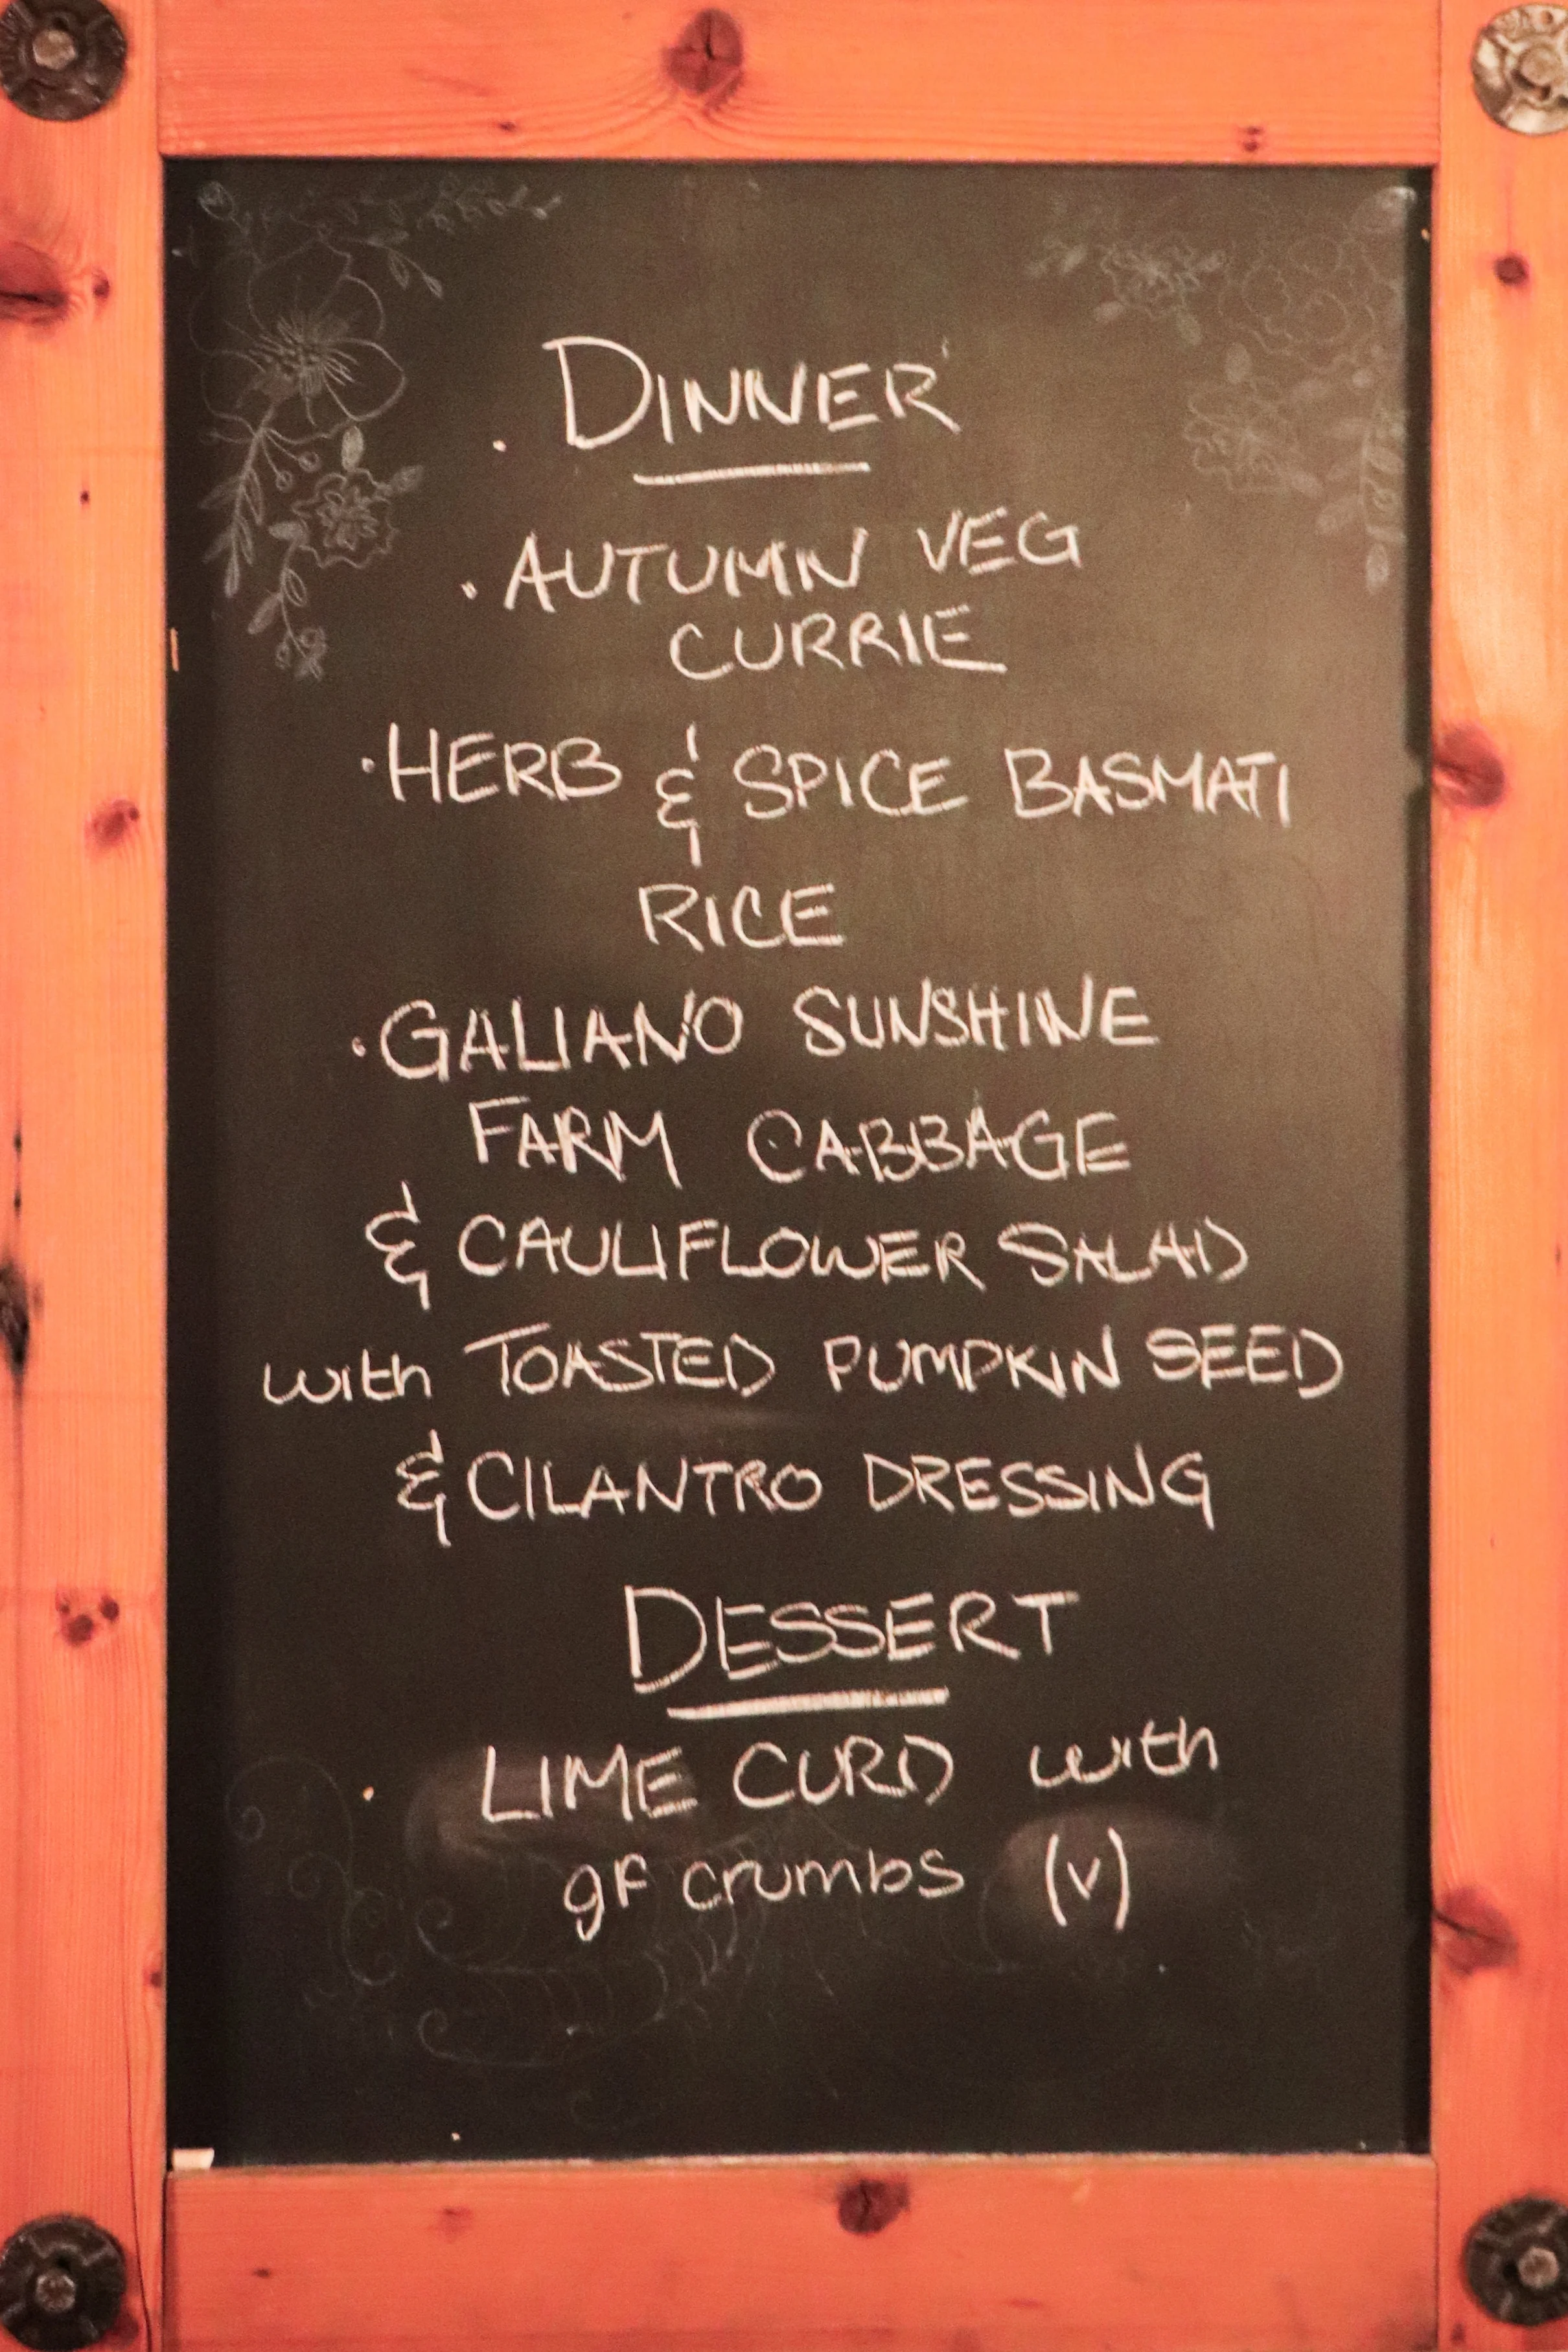 DINNER
· AUTUMN VEG
CURRIE
· HERB & SPICE BASMATI
RICE
· GALIANO SUNSHINE
FARM CABBAGE
& CAULIFLOWER SALAD
with TOASTED PUMPKIN SEED
& CILANTRO DRESSING
DESSERT
· LIME CURD with
gF crumbs (v)